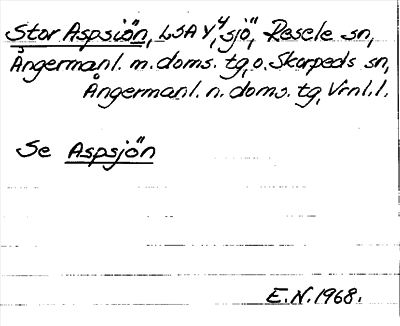 Stor Aspsjön, LSA Y, 4 sjö, Resele sn,
Ångermanl. m. doms. tg, o. Skorpeds sn,
Ångermanl. n. doms. tg, Vrnl. l.
Se Aspsjön
E.N. 1968.